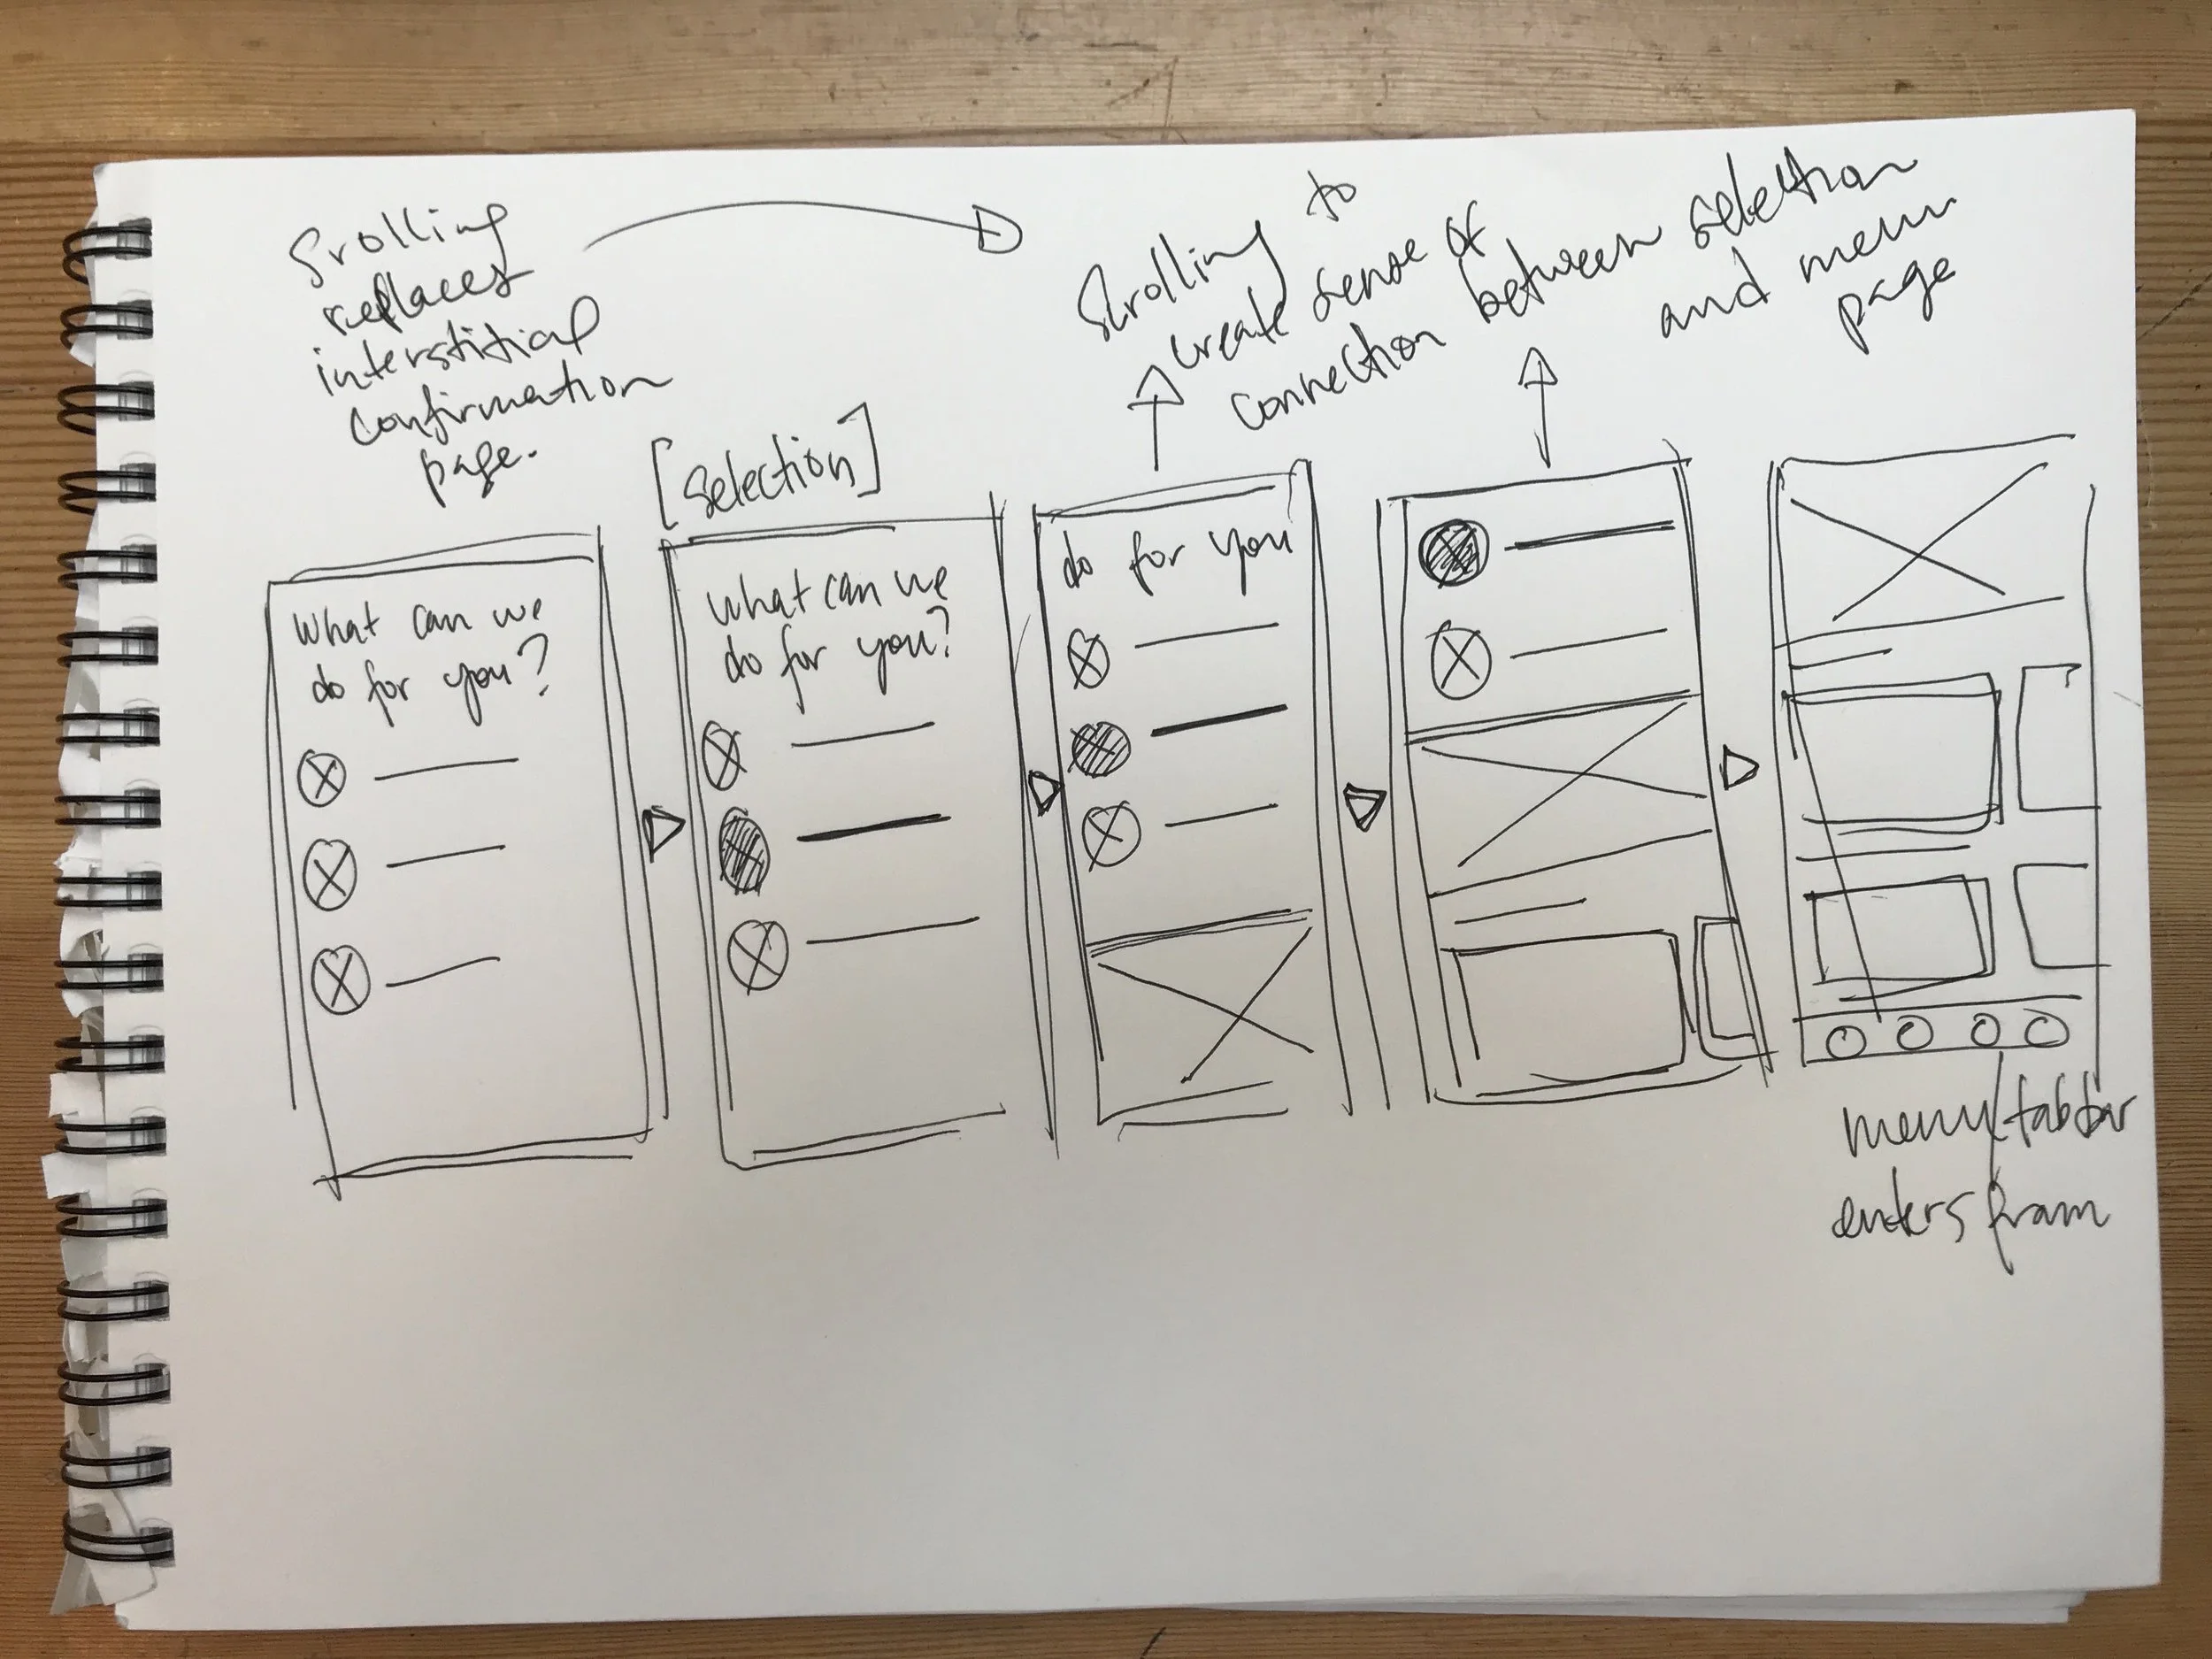 Srolling
replaces
interstitial
confirmation
page.
[Selection]
Scrolling to
create sense of
connection between selection
and menu
page
What can we
do for you?
What can we
do for you?
do for you
menu/tabbar
enters fram